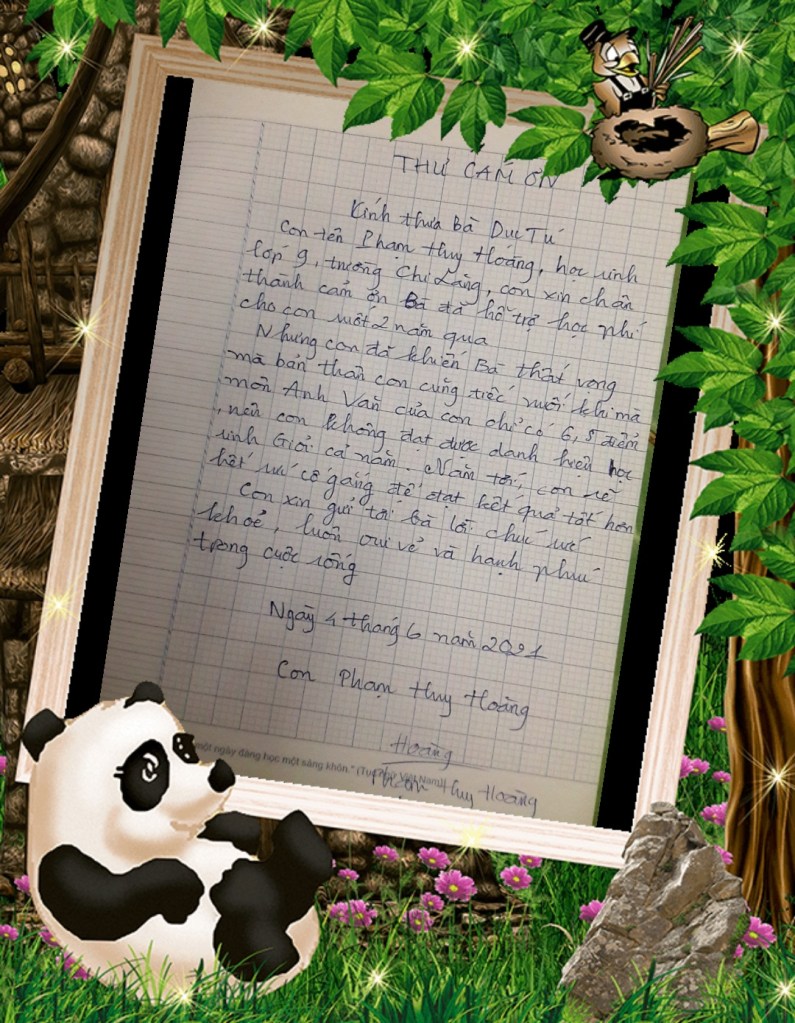 THƯ CẢM ƠN
Kính thưa Bà Dục Tú
Con tên Phạm Huy Hoáng, học sinh
lớp 9, trường Chi Lăng, con xin chân
thành cảm ơn Bà đã hỗ trợ học phí
cho con suốt 2 năm qua
Nhưng con đã khiến Bà thất vọng
mà bản thân con cũng tiếc nuối khi mà
môn Anh Văn của con chỉ có 6,5 điểm
, nên con không đạt được danh hiệu học
sinh Giỏi cả năm. Năm tới, con sẽ
hết sức cố gắng để đạt kết quả tốt hơn
Con xin gửi tới bà lời chúc sức
khoẻ, luôn vui vẻ và hạnh phúc
trong cuộc sống
Ngày 4 tháng 6 năm 2021
Con Phạm Huy Hoàng
Hoàng
Phạm Huy Hoàng
một ngày đàng học một sàng khôn." (Tục ngữ Việt Nam)